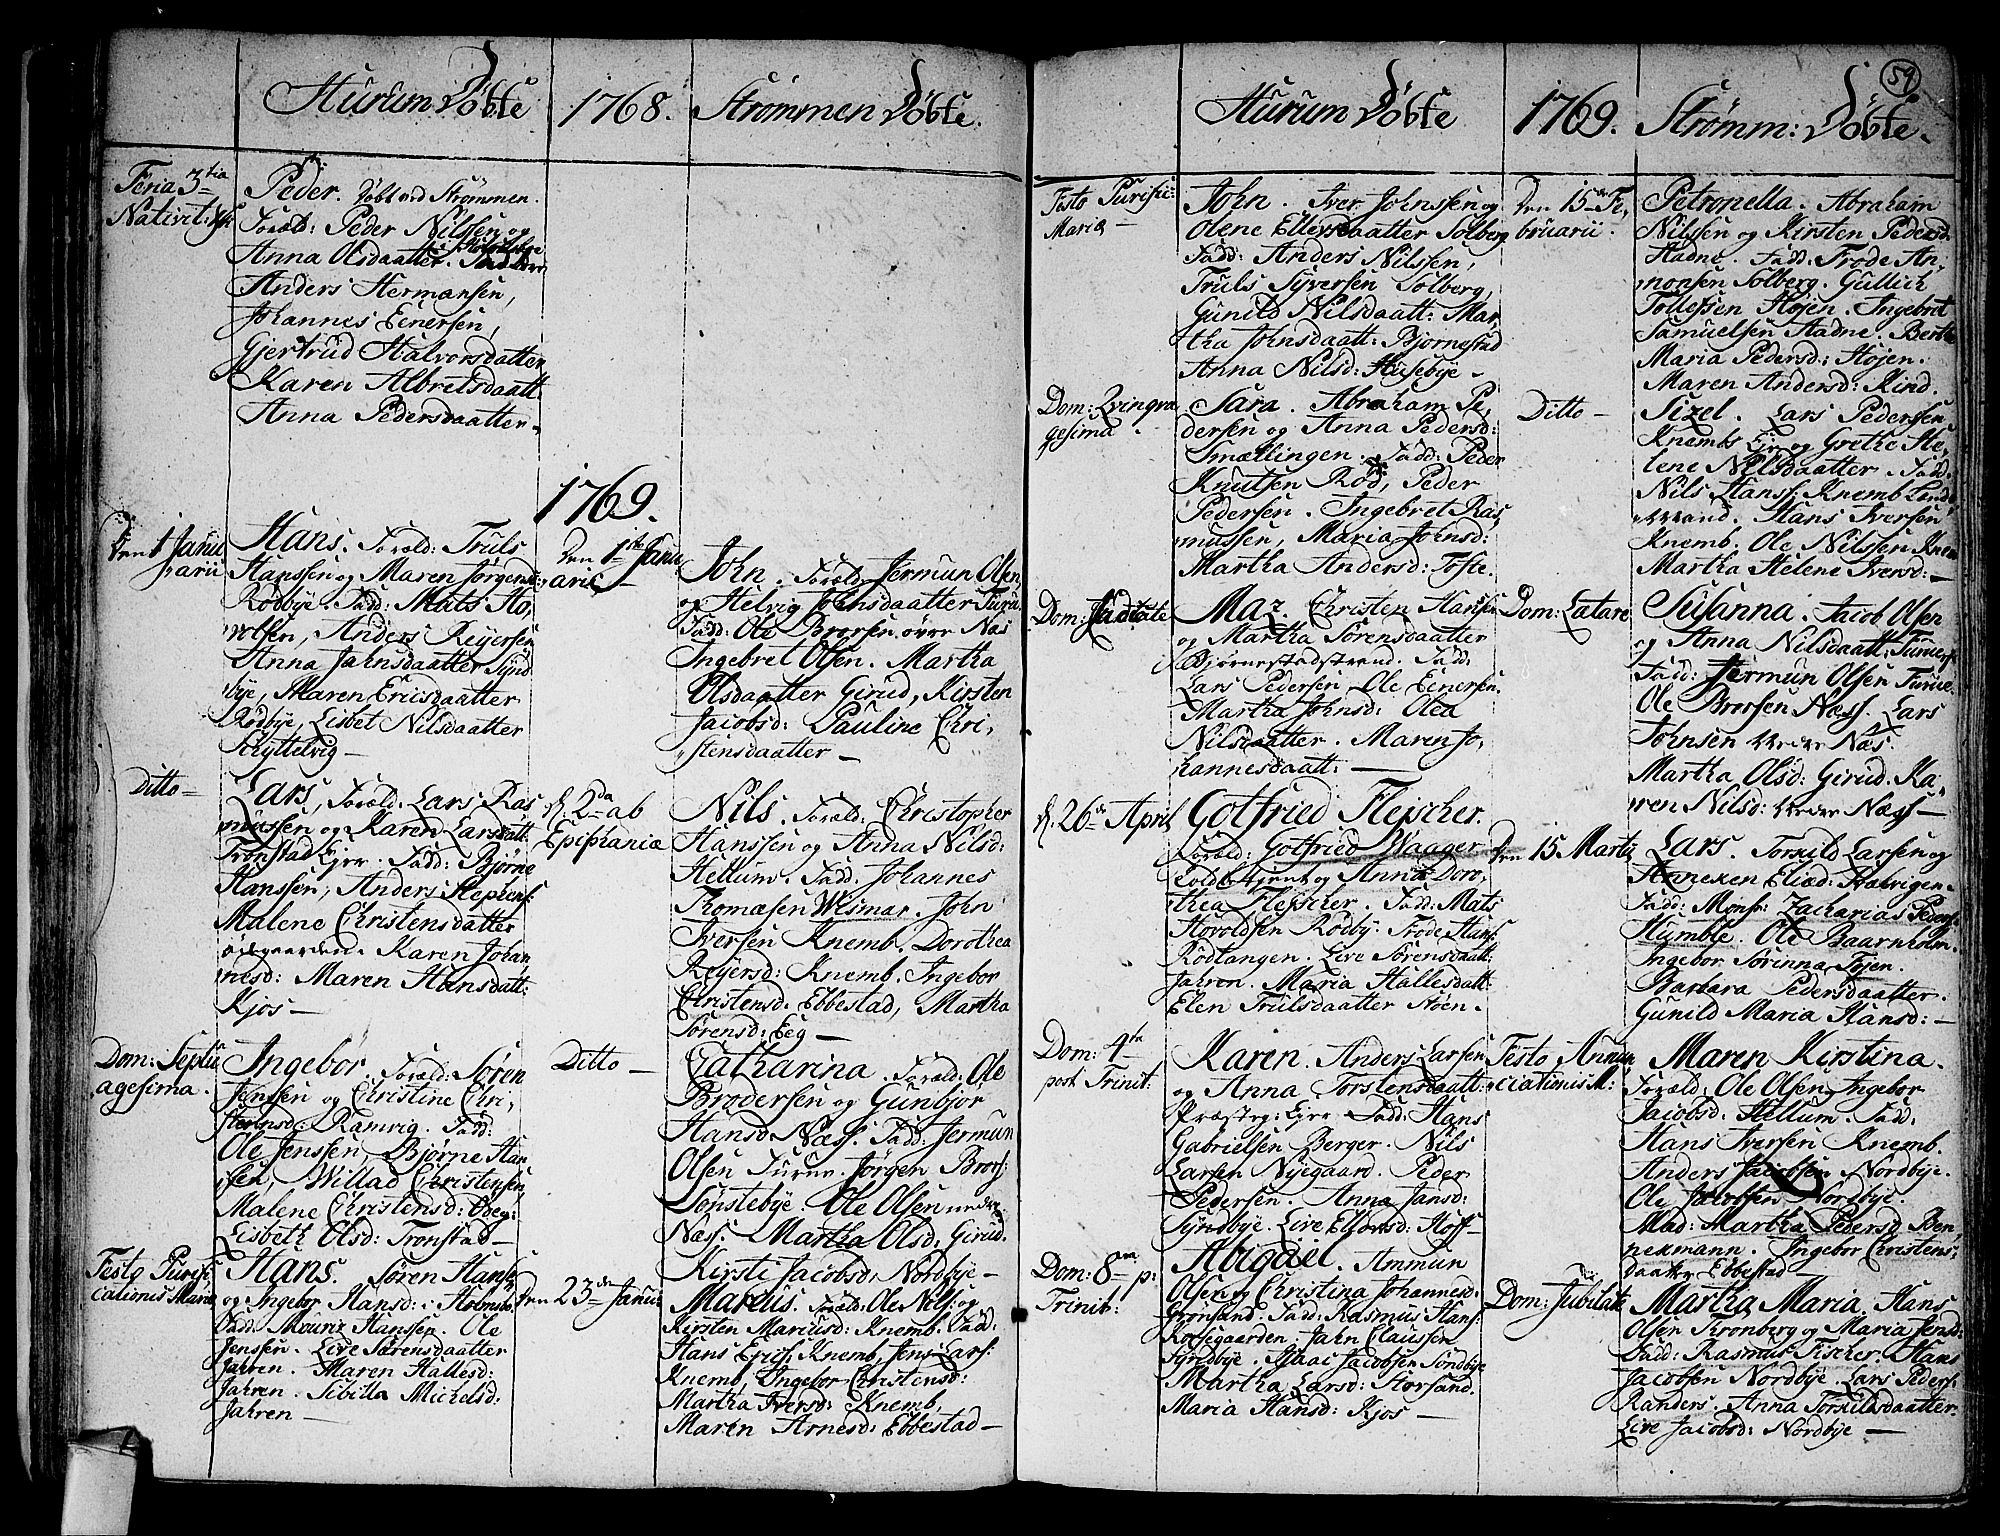 Hurum Döbte
1768.
Strömmen Döbte.
Feria 3tia
Nativit:
Peder. Döbt ved Strömmen.
Foræld: Peder Nilssen og
Anna Olsdaatter.
Anders Hermansen,
Johannes Einersen,
Gjertrud Halvorsdatter
Karen Albretsdaatt:
Anna Pedersdaatter.
1769.
Den 1 Janu
arii
Hans. Foræld: Truls
Hanssen og Maren Jørgensd:
Rödbye. Fadd: Mats Ho,
volsen, Anders Reyersen
Anna Jahnsdaatter Synd
bye, Maren Ericsdaatter
Rödbye, Lisbet Nilsdaatter
Schyttelvig—
Ditto—
Lars, Foræld: Lars Ras
mussen og Karen Larsdatt:
Tronstad Ejer. Fadd: Björne
Hanssen, Anders Stephens:
Malene Christensdatter
Karen Johan
nesd: Maren Hansdatt:
Kjos—
Dom: Septu
agesima.
Ingebor. Foræld: Sören
Jenssen og Christine Chri,
stensd: Ramvig. Fadd:
Ole Jenssen, Björne Han
sen, Willad Christensen,
Malene Christensd: Ödeg:
Lisbeth Olsd: Tronstad—
Festo Purifi
cationis Mariæ
Hans. Sören Hans:
og Ingebor Hansd: i Holmsbo.
Fadd: Mouriz Hanssen. Ole
Jensen. Live Sörensdaatter
Jahren. Maren Hallesd:
Jahren. Sibilla Michelsd:
Jahren—
Den 1ste Janu
arii—
John. Foræld: Jermun Olsen,
og Helvig Johnsdaatter Furu.
Fadd: Ole Brorsen övre Næs
Ingebret Olsen. Martha
Olsdaatter Girud, Kirsten
Jacobsd: Pauline Chri,
stensdaatter—
d. 2da ab
Epiphaniæ
Nils. Foræld: Christopher
Hanssen og Anna Nilsd:
Hellum. Fadd: Johannes
Thomæsen Wismar. John
Iversen Knemb. Dorothea
Reyersd: Knemb. Ingebor
Christensd. Ebbestad, Martha
Sörensd: Eeg—
Ditto—
Catharina. Foræld: Ole
Brodersen og Gunbjor
Hansd. Næss. Fadd: Jermun
Olsen Furue. Jörgen Brors:
Sönstebye. Ole Olsen nedre
Næss. Martha Olsd: Girud.
Kirsti Jacobsd: Nordbye—
Den 23de Janu:
Marcus. Foræld: Ole Nils: og
Kirsten Mariusd: Knemb. Fadd:
Hans Erics: Knemb, Jens Lars:
Knemb, Ingebor Christensd:
Martha Iversd: Knemb,
Maren Arnesd: Ebbestad—
59
Hurum Döbte
1769.
Strömm: Döbte.
Festo Purific:
Mariæ—
John. Iver Johnssen og
Olene Ellersdaatter Solberg
Fadd: Anders Nilssen,
Truls Syversen Solberg,
Gunild Nilsdaatt: Mar,
tha Johnsdaatt: Björnestad
Anna Nilsd: Husebye.
Dom: Qvinqva
gesima.
Sara. Abraham Pe,
dersen og Anna Pedersd:
Smætlingen. Fadd: Peder
Knutsen Röd, Peder
Pedersen. Ingebret Ras,
mussen, Maria Johnsd:
Martha Andersd: Tofte.
Dom:
Maz. Christen Hanssen
og Martha Sörensdaatter
Björnestadstrand. Fadd:
Lars Pedersen. Ole Einersen.
Martha Johnsd: Olea
Nilsdaatter. Maren Jo,
hannesdaatt:—
d. 26de April
Gotfried Flejscher.
Foræld: Gotfried Waager
og Anna Doro,
thea Flejscher. Fadd: Mats
Hovoldsen Rödby. Frode Hans:
Rödtangen. Live Sörensdaatt:
Jahren. Maria Hallesdatt:
Elen Trulsdaatter Nöen.
Dom: 4ta
post Trinit:
Karen. Anders Larsen
og Anna Torstensdaatt:
Præsteg: Ejer. Fadd: Hans
Gabrielsen Berger. Nils
Larsen Nyegaard. Peder
Pedersen. Anna Jansd:
Syndbye. Live Ellensd: Hoff—
Dom: 8va p:
Trinit:
Abigael. Ammun
Olsen og Christina Johannesd:
Grönsand. Fadd: Rasmus Hans:
Korsegaarden. Jahn Claussen
Syndbye. Isaac Jacobsen Söndbye
Martha Larsd: Storsand.
Maria Hansd: Kjos—
Den 15de Fe,
bruarii.
Petronella. Abraham
Nilssen og Kirsten Pedersd:
Hadne. Fadd: Frode Am,
monsen Solberg. Gullich
Tollefsen Höjen. Ingebret
Samuelsen Hadne. Berthe
Maria Pedersd: Höjen.
Maren Andersd: Kind.
Ditto—
Sizel. Lars Pedersen
Knembs Ejr og Grethe He,
lene Nilsdaatter. Fadd:
Nils Hans: Knemb
Hans Iversen
Knemb. Ole Nilssen Knem
Martha Helene Iversd:—
Dom: Lætare
Susanna. Jacob Olsen
og Anna Nilsdaatt: Furue
Fadd: Jermun Olsen Furue.
Ole Brorsen Næss. Lars
Johnsen Nedre Næs.
Martha Olsd: Girud. Ka,
ren Nilsd: Nedre Næss—
Den 15 Martij
Lars. Torkild Larsen og
Annexen Eliæd: Halvigen
Fadd: Monsr: Zacharias Peders:
Humble. Ole Baarnholm.
Ingebor Sörinna Föjen.
Barbara Pedersdaatter.
Gunild Maria Hansd:—
Festo Annun
ciationis M:
Maren Kirstina.
Foræld: Ole Olsen, Ingebor
Jacobsd: Hellum. Fadd:
Hans Iversen Knemb.
Anders Jacobsen Nordbye.
Ole Jacobsen Nordbye
Mad: Martha Pedersd Ben
nekmann. Ingebor Christens
daatter Ebbestad—
Dom: Jubilate
Martha Maria. Hans
Olsen Tronberg og Maria Jensd:
Fadd: Rasmus Fischer. Hans
Jacobsen Nordbye. Lars Peders:
Randers. Anna Torkildsdaatter.
Live Jacobsd: Nordbye—